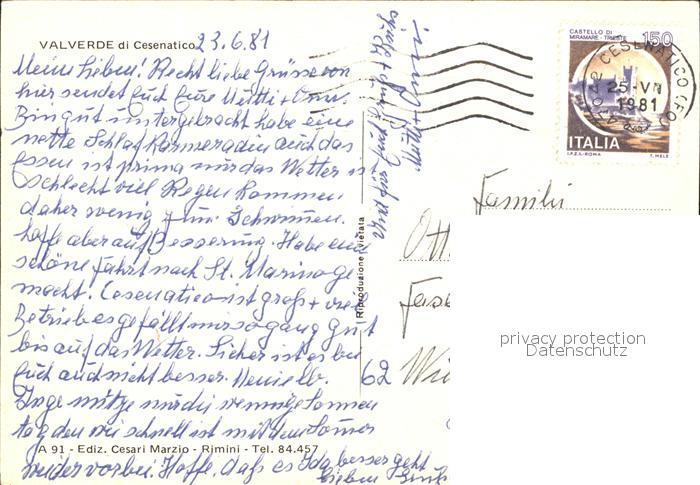 VALVERDE di Cesenatico 23.6.81
Meine Lieben! Recht liebe Grüsse von
hier sendet Euch Eure Mutti + Omi.
Bin gut untergebracht habe eine
nette Schlafkammeradin auch das
Essen ist prima nur das Wetter is
schlecht viel Regen kommen
daher wenig zum Schwimmen.
hoffe aber auf Besserung. Habe eine
schöne Fahrt nach St. Marino ge
macht. Cesenatico ist groß + viel
Betrieb es gefällt mir so ganz gut
bis auf das Wetter. Sicher ist es bei
Euch auch nicht besser. Meine lb.
Inge nütze nur die wenige Sonnen
tag den wie schnell ist mit dem Sommer
wieder vorbei. Hoffe, daß es Ida besser geht
lieben Gruß
A 91 - Ediz. Cesari Marzio - Rimini - Tel. 84.457
Riproduzione vietata
CASTELLO DI
MIRAMARE - TRIESTE
150
ITALIA
I.P.Z.S. - ROMA
T. MELE
CESENATICO (FO)
25-VII
1981
Familie
Ott
62 Wi
privacy protection
Datenschutz